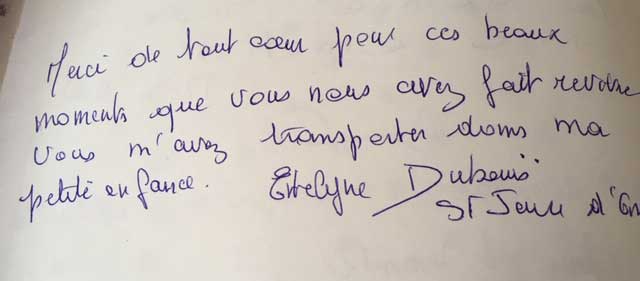 Merci de tout cœur pour ces beaux
moments que vous nous avez fait
vous m'avez transporter dans ma
petite enfance.
St Jean